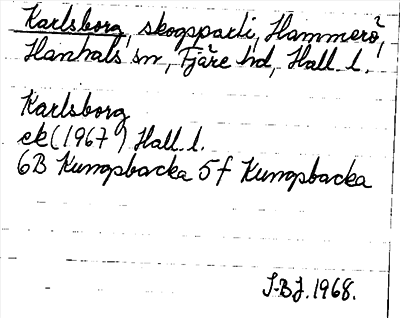 Karlsborg, skogsparti, Hammerö,
Hanhals sn, Fjäre hd, Hall. l.
Karlsborg
ek (1967) Hall. l.
6B Kungsbacka 5f Kungsbacka
J-BJ. 1968.